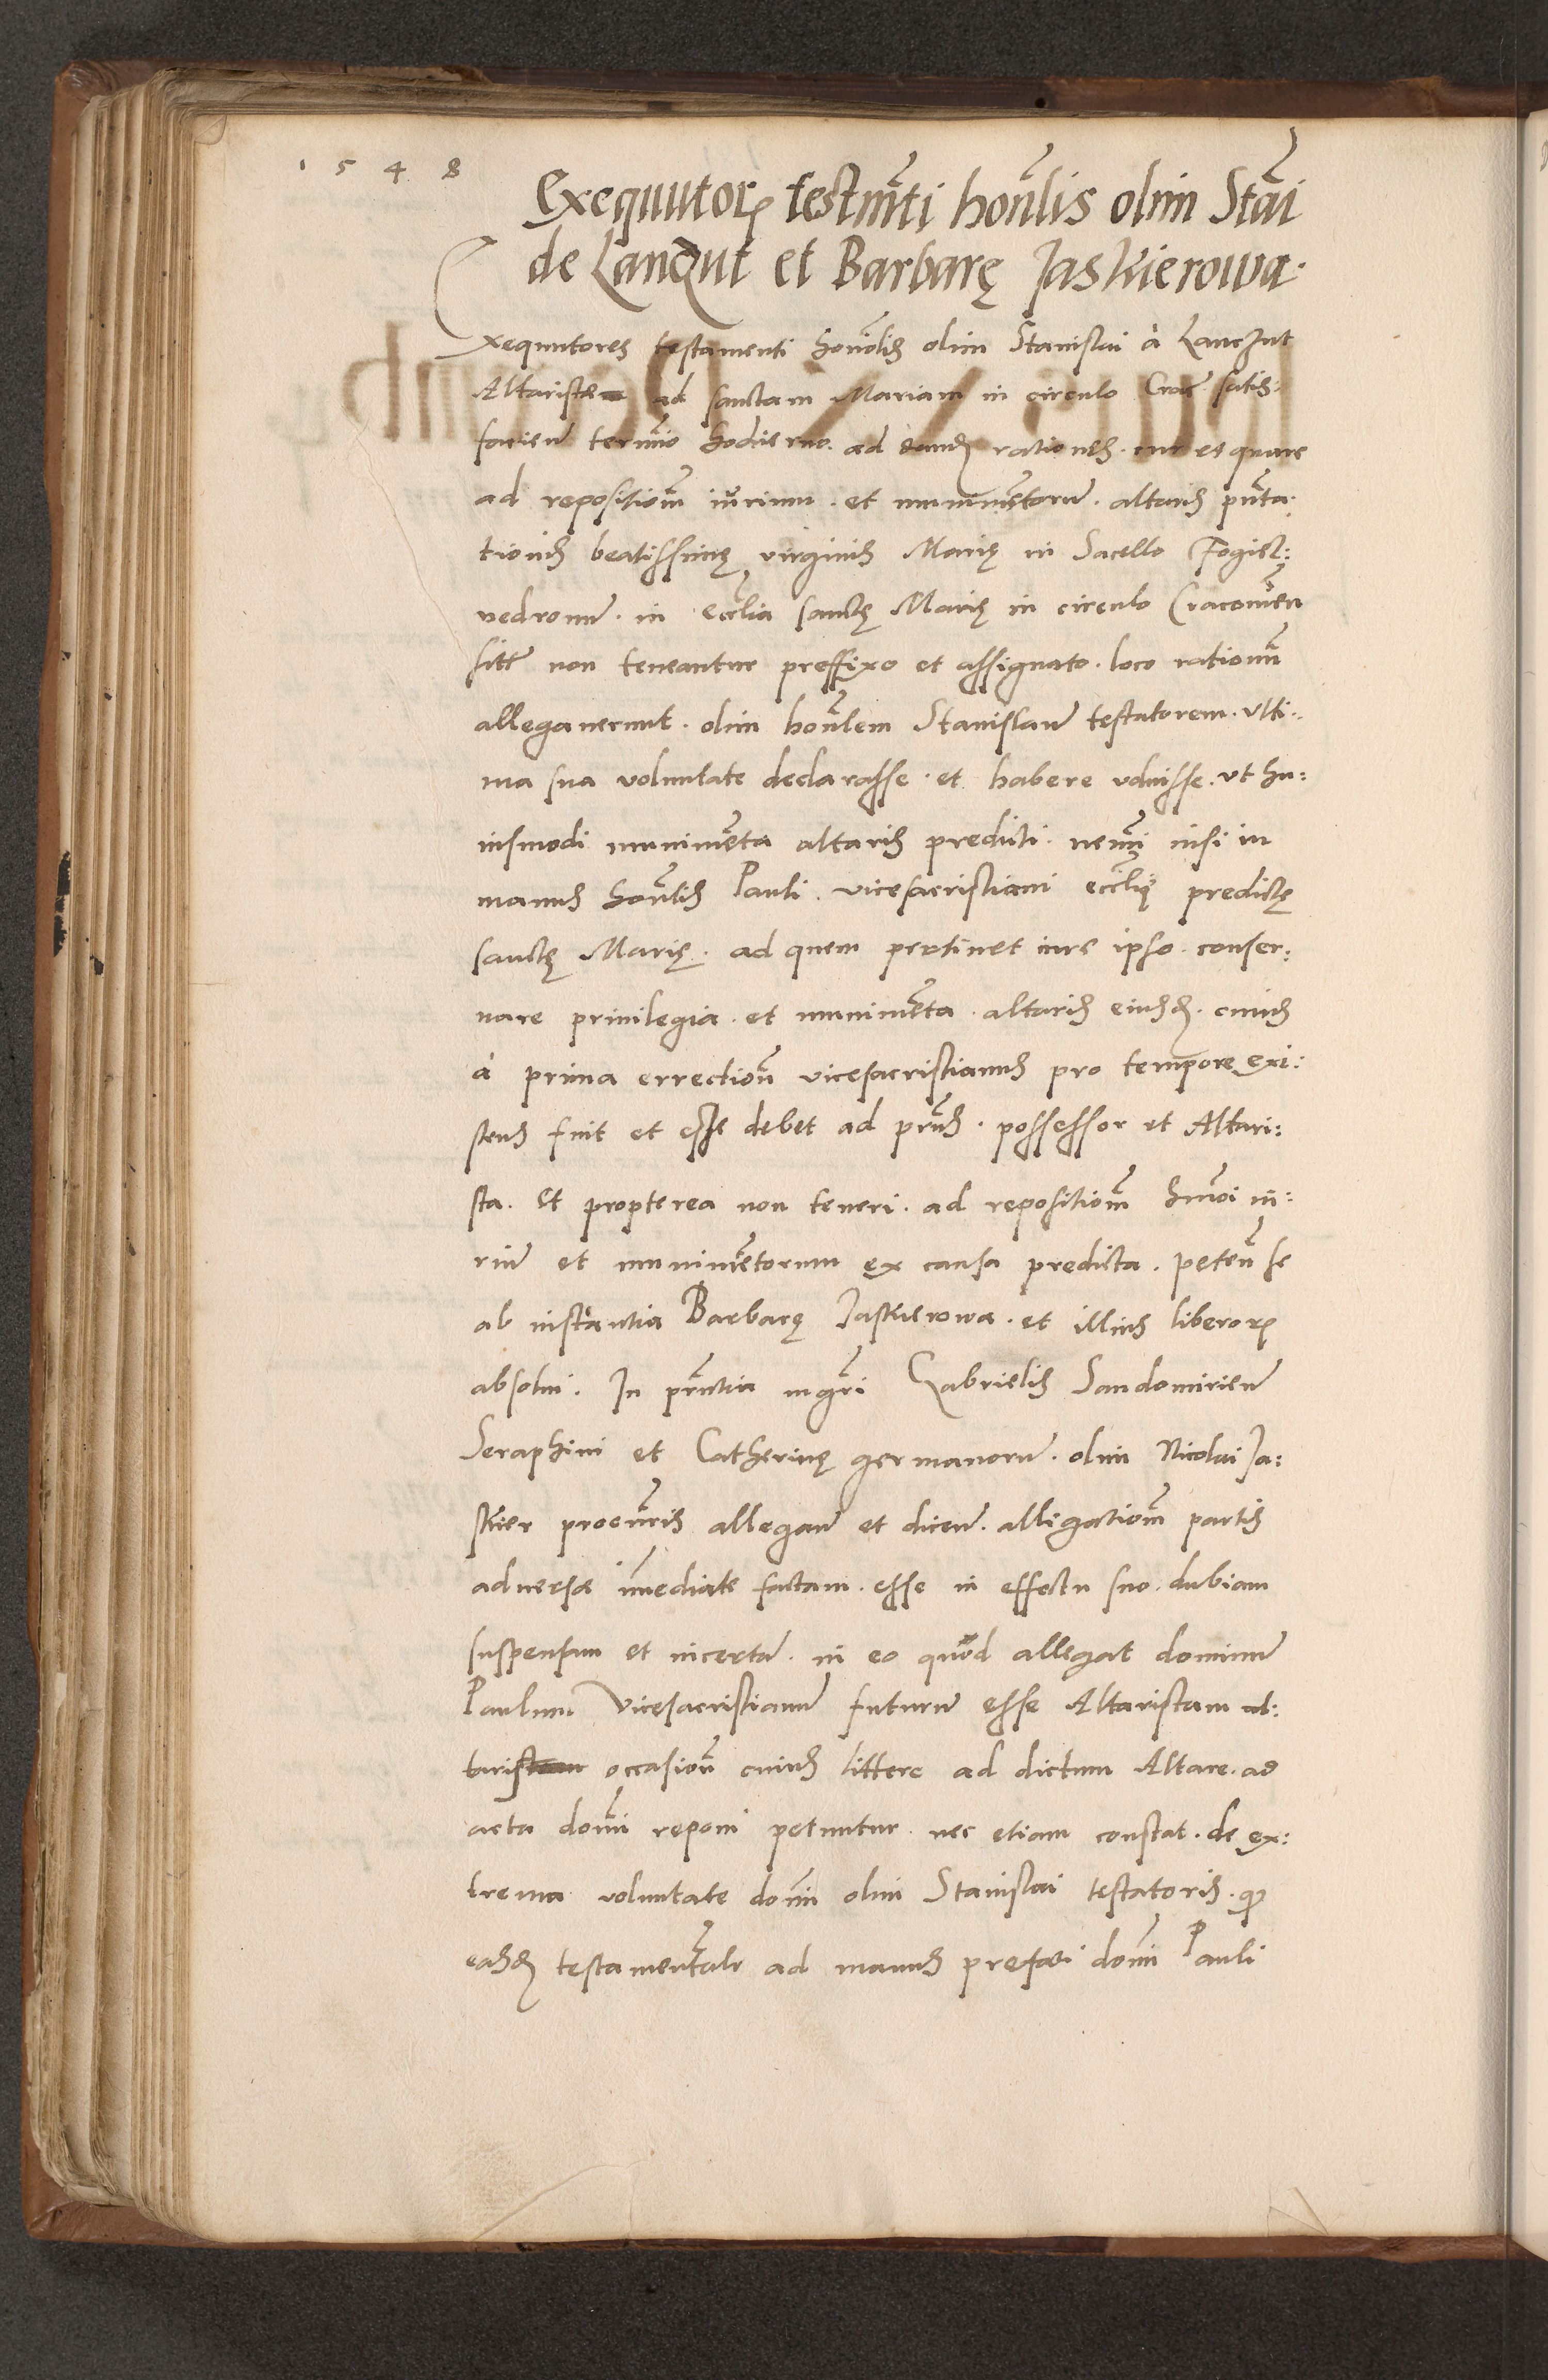 1 5 4 8
Exequutorꝝ testm̃ti hoñlis olim Stãi
de Lanczut et Barbarę Jaskierowa.
Exequutores testamenti honolis olim Stanislai à Lanczut
Altaristæ ad sanctam Mariam in circulo Crac̃ satis:
facieñ termĩo hodierno. ad dandꝫ rationes. cur et quare
ad repositioñm iurium. et munimẽtorũ. altaris pñta:
tionis beatissimę virginis Marię in Sacello Fogiel:
vedronũ. in eccłia sanctę Marię in circulo Cracovieñ
sitĩ non teneantur preffixo et assignato. loco rationum
allegaverunt. olim hoñlem Stanislaũ testatorem. ulti:
ma sua voluntate declarasse. et habere voluisse. ut hu:
iusmodi munimẽta altaris predicti. nemĩ nisi in
manus hoñlis Pauli. vicesacristiani eccłię predictę
sanctę Marię. ad quem pertinet iure ipso. conser:
vare privilegia. et munimẽta. altaris eiusdꝫ. cuius
à prima errectioñ vicesacristianus pro tempore exi:
stens fuit et esse debet ad prñs. possessor et Altari:
sta. Et propterea non teneri. ad repositioñm hm̃oi iu:
riũ et munimẽtorum ex causa predicta. peteñ se
ab instantia Barbarę Jaskierowa. et illius liberorꝝ
absolvi. In prñtia mgr̃i Gabrielis Sandomirieñ
Seraphini et Catherinę germanorũ. olim Nicolai Ja:
skier procuñris allegañ et diceñ. alligatioñm partis
adversæ im̃ediate factam. esse in effectu suo. dubiam
suspensam et incertã. in eo quod allegat dominũ
Paulum vicesacristianũ futurũ esse Altaristam al:
taris occasioñ cuius littere ad dictum Altare. ad
acta dom̃i reponi petuntur. nec etiam constat. de ex:
trema voluntate dom̃i olim Stanislai testatoris. qꝫ
easdꝫ testamentales ad manus prefati dom̃i Pauli